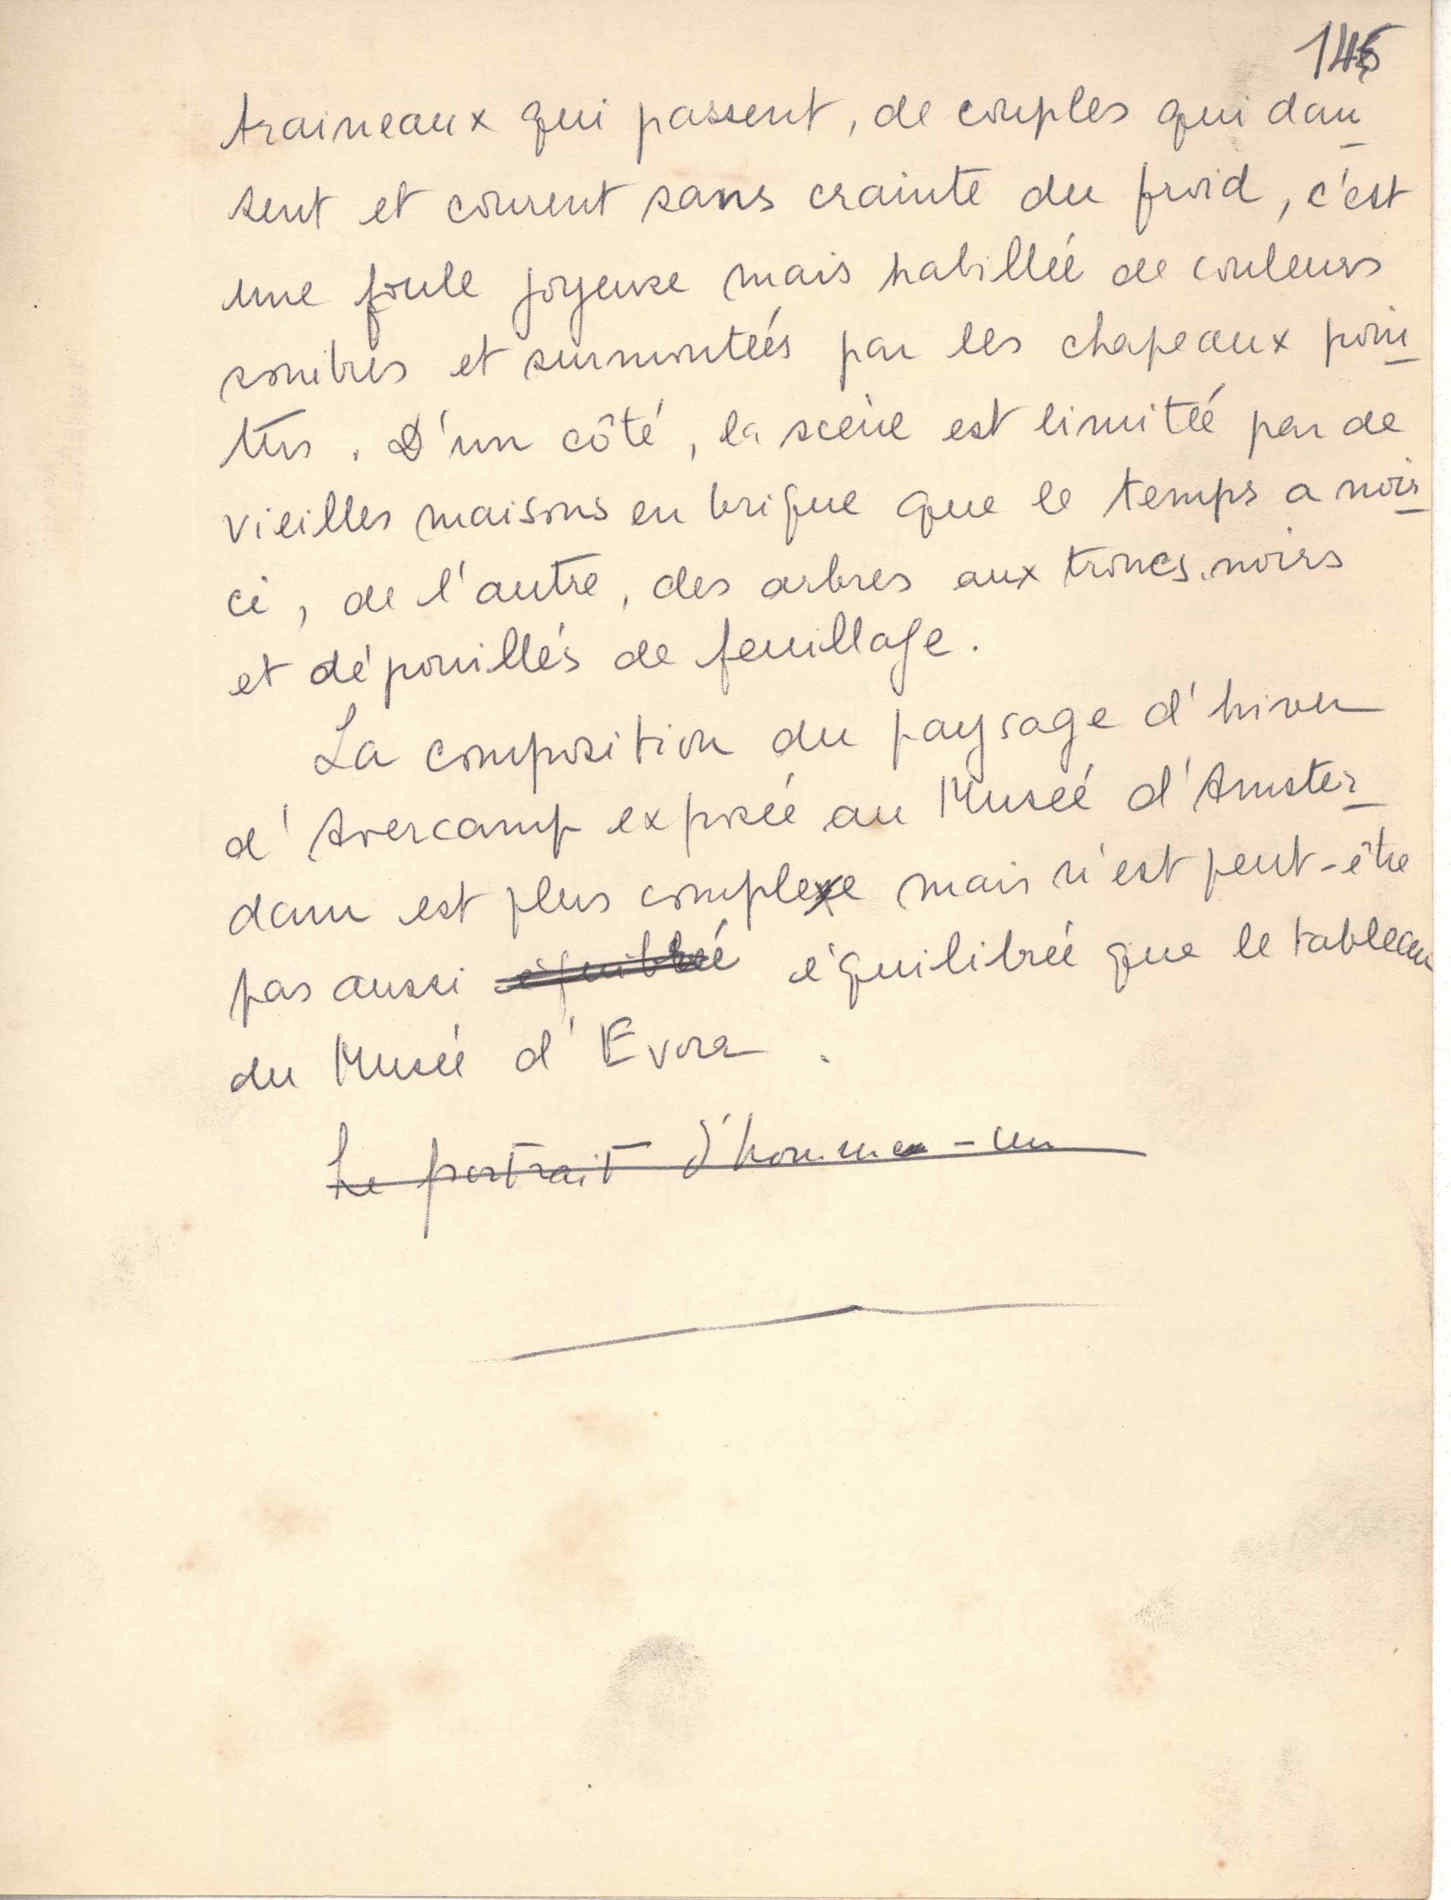 145
traineaux qui passent, de couples qui dan_
sent et courent sans crainte du froid, c'est
une foule joyeuse mais habillée de couleurs
sombres et surmontées par les chapeaux poin_
tus. D'un côté, la scène est limitée par de
vieilles maisons en brique que le temps a noir_
ci, de l'autre, des arbres aux troncs noirs
et dépouillés de feuillage.
La composition du paysage d'hiver
d'Avercamp exposée au Musée d'Amster_
dam est plus complexe mais n'est peut-être
pas aussi équilibrée que le tableau
du Musée d'Evora.
Le portrait d'homme - un